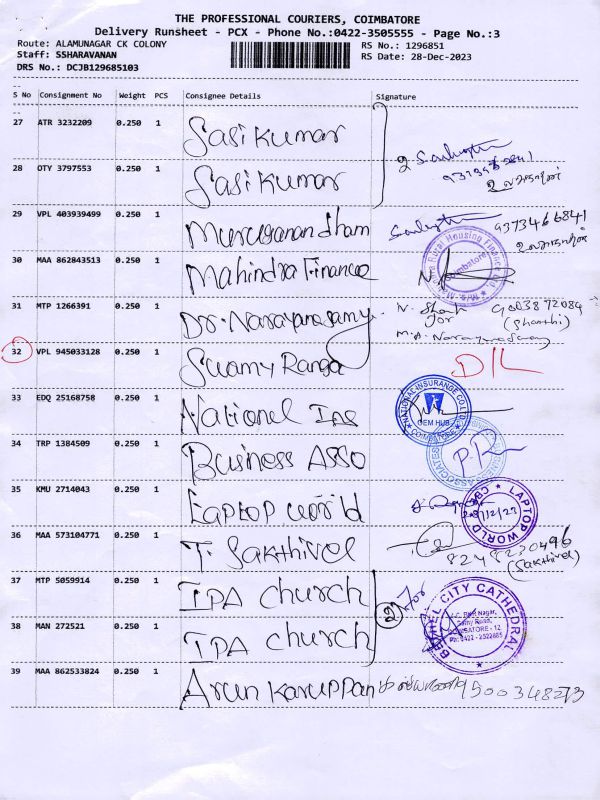 THE PROFESSIONAL COURIERS, COIMBATORE
Delivery Runsheet - PCX - Phone No.:0422-3505555 - Page No.:3
Route: ALAMUNAGAR CK COLONY
RS No.: 1296851
Staff: SSHARAVANAN
RS Date: 28-Dec-2023
DRS No.: DCJB129685103
S No Consignment No Weight PCS Consignee Details Signature
27 ATR 3232209 0.250 1 Sasi Kumar
28 OTY 3797553 0.250 1 Sasi Kumar
29 VPL 403939499 0.250 1 Muruganandham 9373466841
30 MAA 862843513 0.250 1 Mahindra Finance
Rural Housing Finance
Coimbatore
31 MTP 1266391 0.250 1 Dr. Narayanasamy N. Shan 9003872084
for (Shanthi)
32 VPL 945033128 0.250 1 Swamy Ranga D/L
33 EDQ 25168758 0.250 1 National Ins
NATIONAL INSURANCE CO. LTD.
GEM HUB
COIMBATORE
34 TRP 1384509 0.250 1 Business Asso
BUSINESS ASSOCIATES
35 KMU 2714043 0.250 1 Laptop world
LAPTOP WORLD
28/12/23
36 MAA 573104771 0.250 1 T. Sakthivel 8248230496
(Sakthivel)
37 MTP 5059914 0.250 1 IPA church
38 MAN 272521 0.250 1 IPA church
2 for
BETHEL CITY CATHEDRAL
COIMBATORE - 12.
Ph: 0422 - 2522685
39 MAA 862533824 0.250 1 Arun Karuppan 9500348273